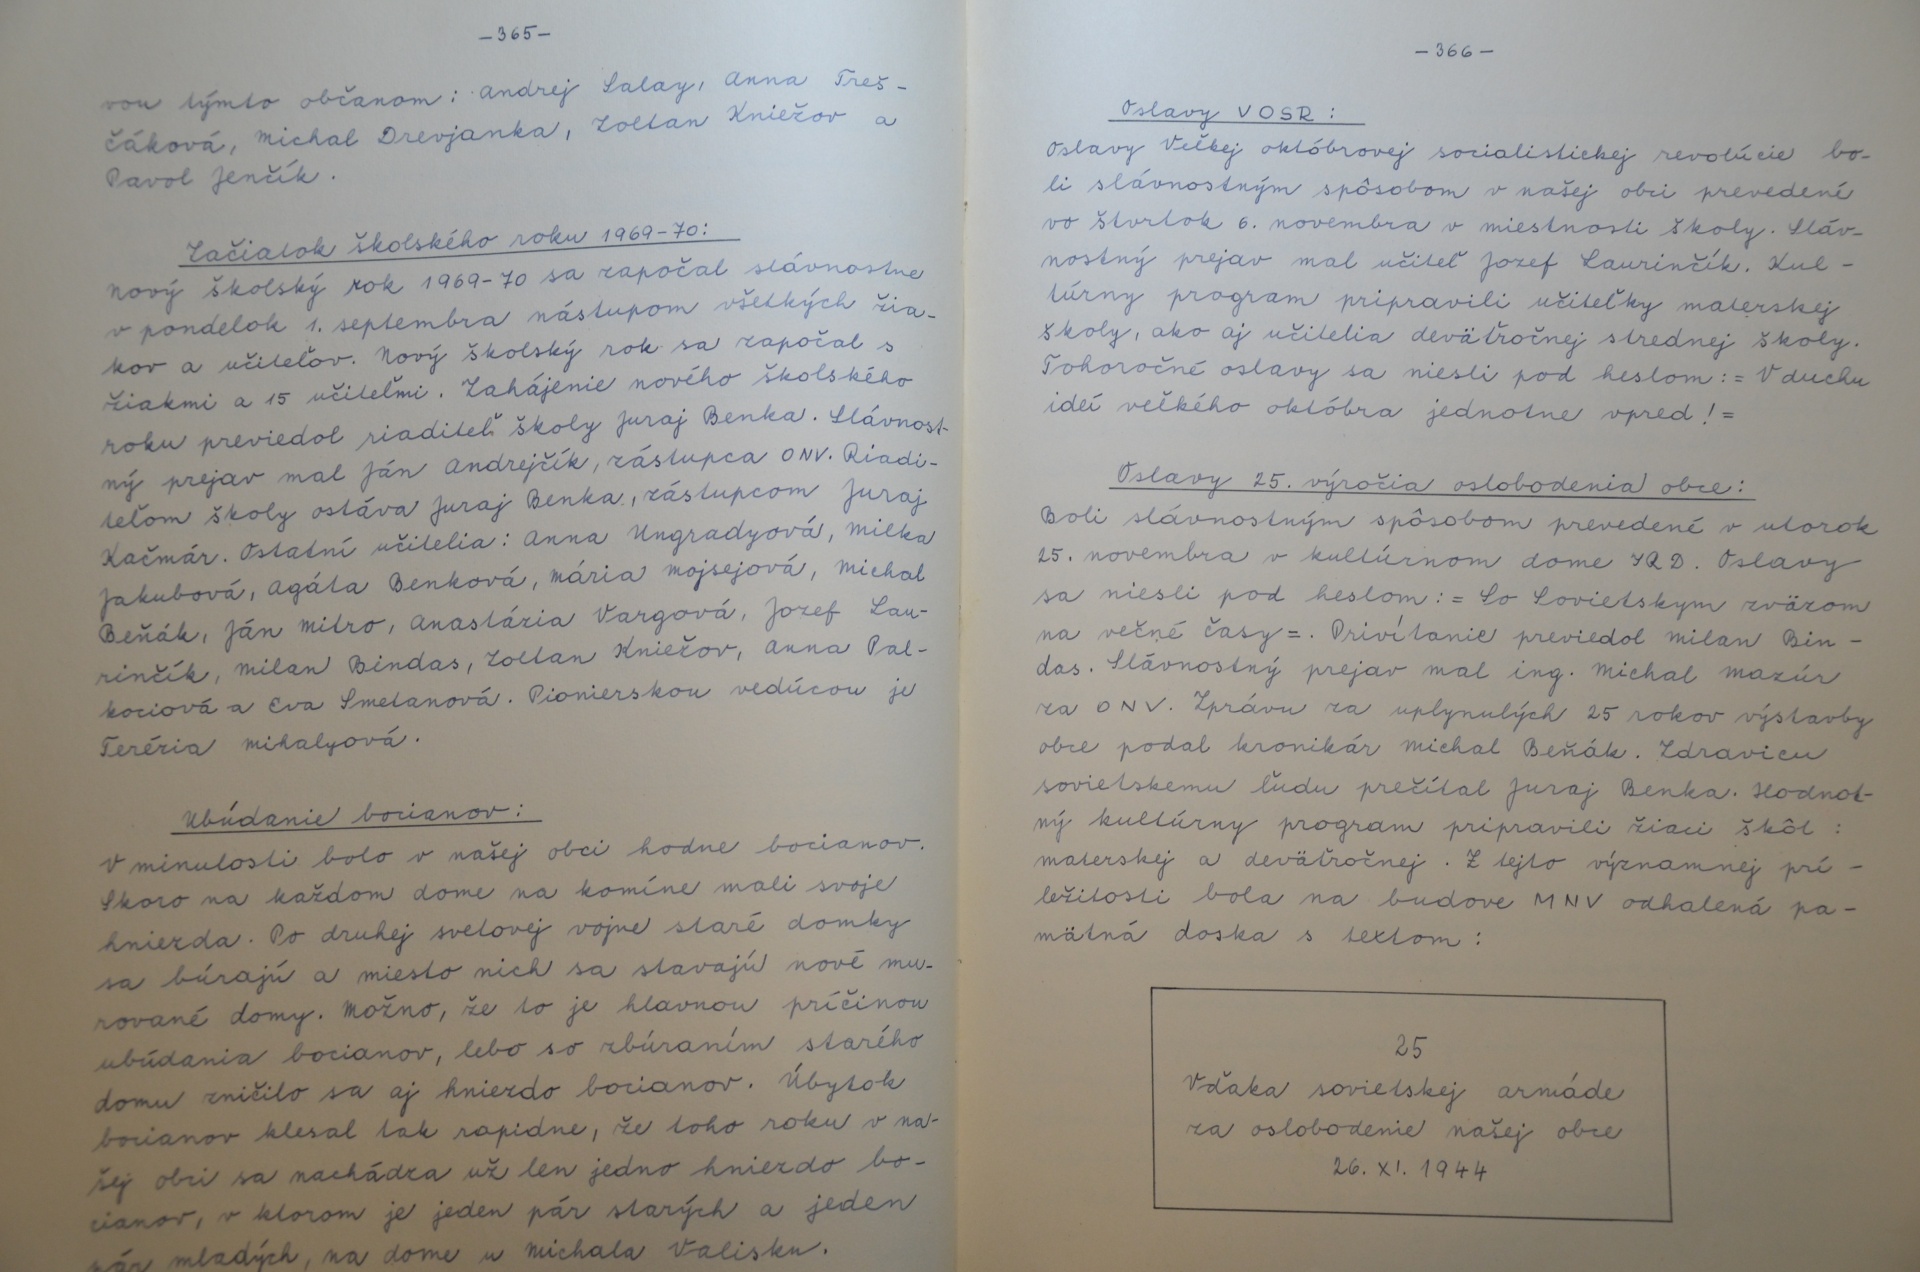 -365-
vou týmto občanom: Andrej Salay, Anna Treš-
čáková, Michal Drevjanka, Zoltan Kniežov a
Pavol Jenčík.
Začiatok školského roku 1969-70:
Nový školský rok 1969-70 sa započal slávnostne
v pondelok 1. septembra nástupom všetkých žia-
kov a učiteľov. Nový školský rok sa započal s
žiakmi a 15 učiteľmi. Zahájenie nového školského
roku previedol riaditeľ školy Juraj Benka. Slávnost-
ný prejav mal Ján Andrejčík, zástupca ONV. Riadi-
teľom školy ostáva Juraj Benka, zástupcom Juraj
Kačmár. Ostatní učitelia: Anna Ungradyová, Milka
Jakubová, Agáta Benková, Mária Mojsejová, Michal
Beňák, Ján Mitro, Anastázia Vargová, Jozef Lau-
rinčík, Milan Bindas, Zoltan Kniežov, Anna Pal-
kociová a Eva Smetanová. Pionierskou vedúcou je
Terézia Mihalyová.
Ubúdanie bocianov:
V minulosti bolo v našej obci hodne bocianov.
Skoro na každom dome na komíne mali svoje
hniezda. Po druhej svetovej vojne staré domky
sa búrajú a miesto nich sa stavajú nové mu-
rované domy. Možno, že to je hlavnou príčinou
ubúdania bocianov, lebo so zbúraním starého
domu zničilo sa aj hniezdo bocianov. Úbytok
bocianov klesal tak rapidne, že toho roku v na-
šej obci sa nachádza už len jedno hniezdo bo-
cianov, v ktorom je jeden pár starých a jeden
pár mladých, na dome u Michala Valisku.
-366-
Oslavy VOSR:
Oslavy Veľkej októbrovej socialistickej revolúcie bo-
li slávnostným spôsobom v našej obci prevedené
vo štvrtok 6. novembra v miestnosti školy. Sláv-
nostný prejav mal učiteľ Jozef Laurinčík. Kul-
túrny program pripravili učiteľky materskej
školy, ako aj učitelia deväťročnej strednej školy.
Tohoročné oslavy sa niesli pod heslom:= V duchu
ideí veľkého októbra jednotne vpred!=
Oslavy 25. výročia oslobodenia obce:
Boli slávnostným spôsobom prevedené v utorok
25. novembra v kultúrnom dome JRD. Oslavy
sa niesli pod heslom:= So Sovietskym zväzom
na večné časy=. Privítanie previedol Milan Bin-
das. Slávnostný prejav mal ing. Michal Mazúr
za ONV. Zprávu za uplynulých 25 rokov výstavby
obce podal kronikár Michal Beňák. Zdravicu
sovietskemu ľudu prečítal Juraj Benka. Hodnot-
ný kultúrny program pripravili žiaci škôl:
materskej a deväťročnej. Z tejto významnej prí-
ležitosti bola na budove MNV odhalená pa-
mätná doska s textom:
25
Vďaka sovietskej armáde
za oslobodenie našej obce
26. XI. 1944